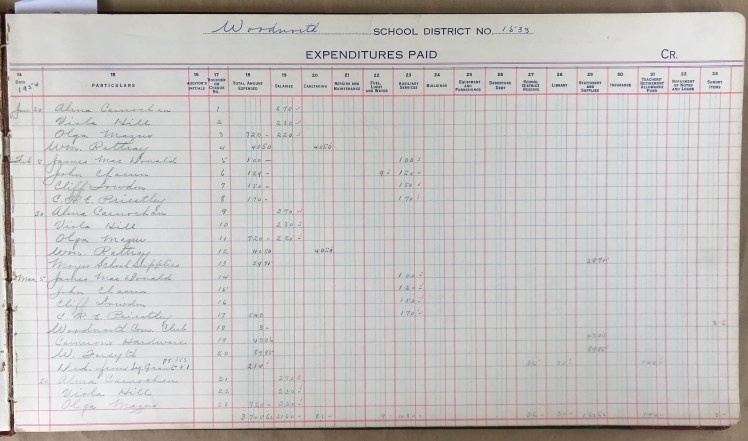 Woodworth SCHOOL DISTRICT NO. 1533
EXPENDITURES PAID CR.
14 15 16 17 18 19 20 21 22 23 24 25 26 27 28 29 30 31 32 33
DATE 1954 PARTICULARS AUDITOR'S INITIALS VOUCHER OR CHEQUE NO. TOTAL AMOUNT EXPENDED SALARIES CARETAKING REPAIRS AND MAINTENANCE FUEL, LIGHT AND WATER AUXILIARY SERVICES BUILDINGS EQUIPMENT AND FURNISHINGS DEBENTURE DEBT SCHOOL DISTRICT LIBRARY STATIONERY AND SUPPLIES INSURANCE TEACHERS' RETIREMENT ALLOWANCE FUND REPAYMENT OF NOTES AND LOANS SUNDRY ITEMS
Jan 20 Alma Carnochan 1 270 -
Viola Hill 2 230 -
Olga Mazur 3 720 - 220 -
Wm. Rattray 4 4050 4050
Feb 5 James Mac Donald 5 100 - 100 -
John Charun 6 129 - 9 - 120 -
Cliff Lowdon 7 150 - 150 -
C. R. E. Priestley 8 170 - 170 -
20 Alma Carnochan 9 270 -
Viola Hill 10 230 -
Olga Mazur 11 720 - 220 -
Wm. Rattray 12 4050 4050
Moyer School Supplies 13
Mar 5 James Mac Donald 14 100 -
John Charun 15 120 -
Cliff Lowdon 16 150 -
C. R. E. Priestley 17 540 170 -
Woodworth Com. Club 18 3 - 3 -
Hardware 19
W. Forsyth 20
Ded. from Leg. Grant 210
20 Alma Carnochan 21 270 -
Viola Hill 22 230 -
Olga Mazur 23 720 - 220 -
81 - 9 -